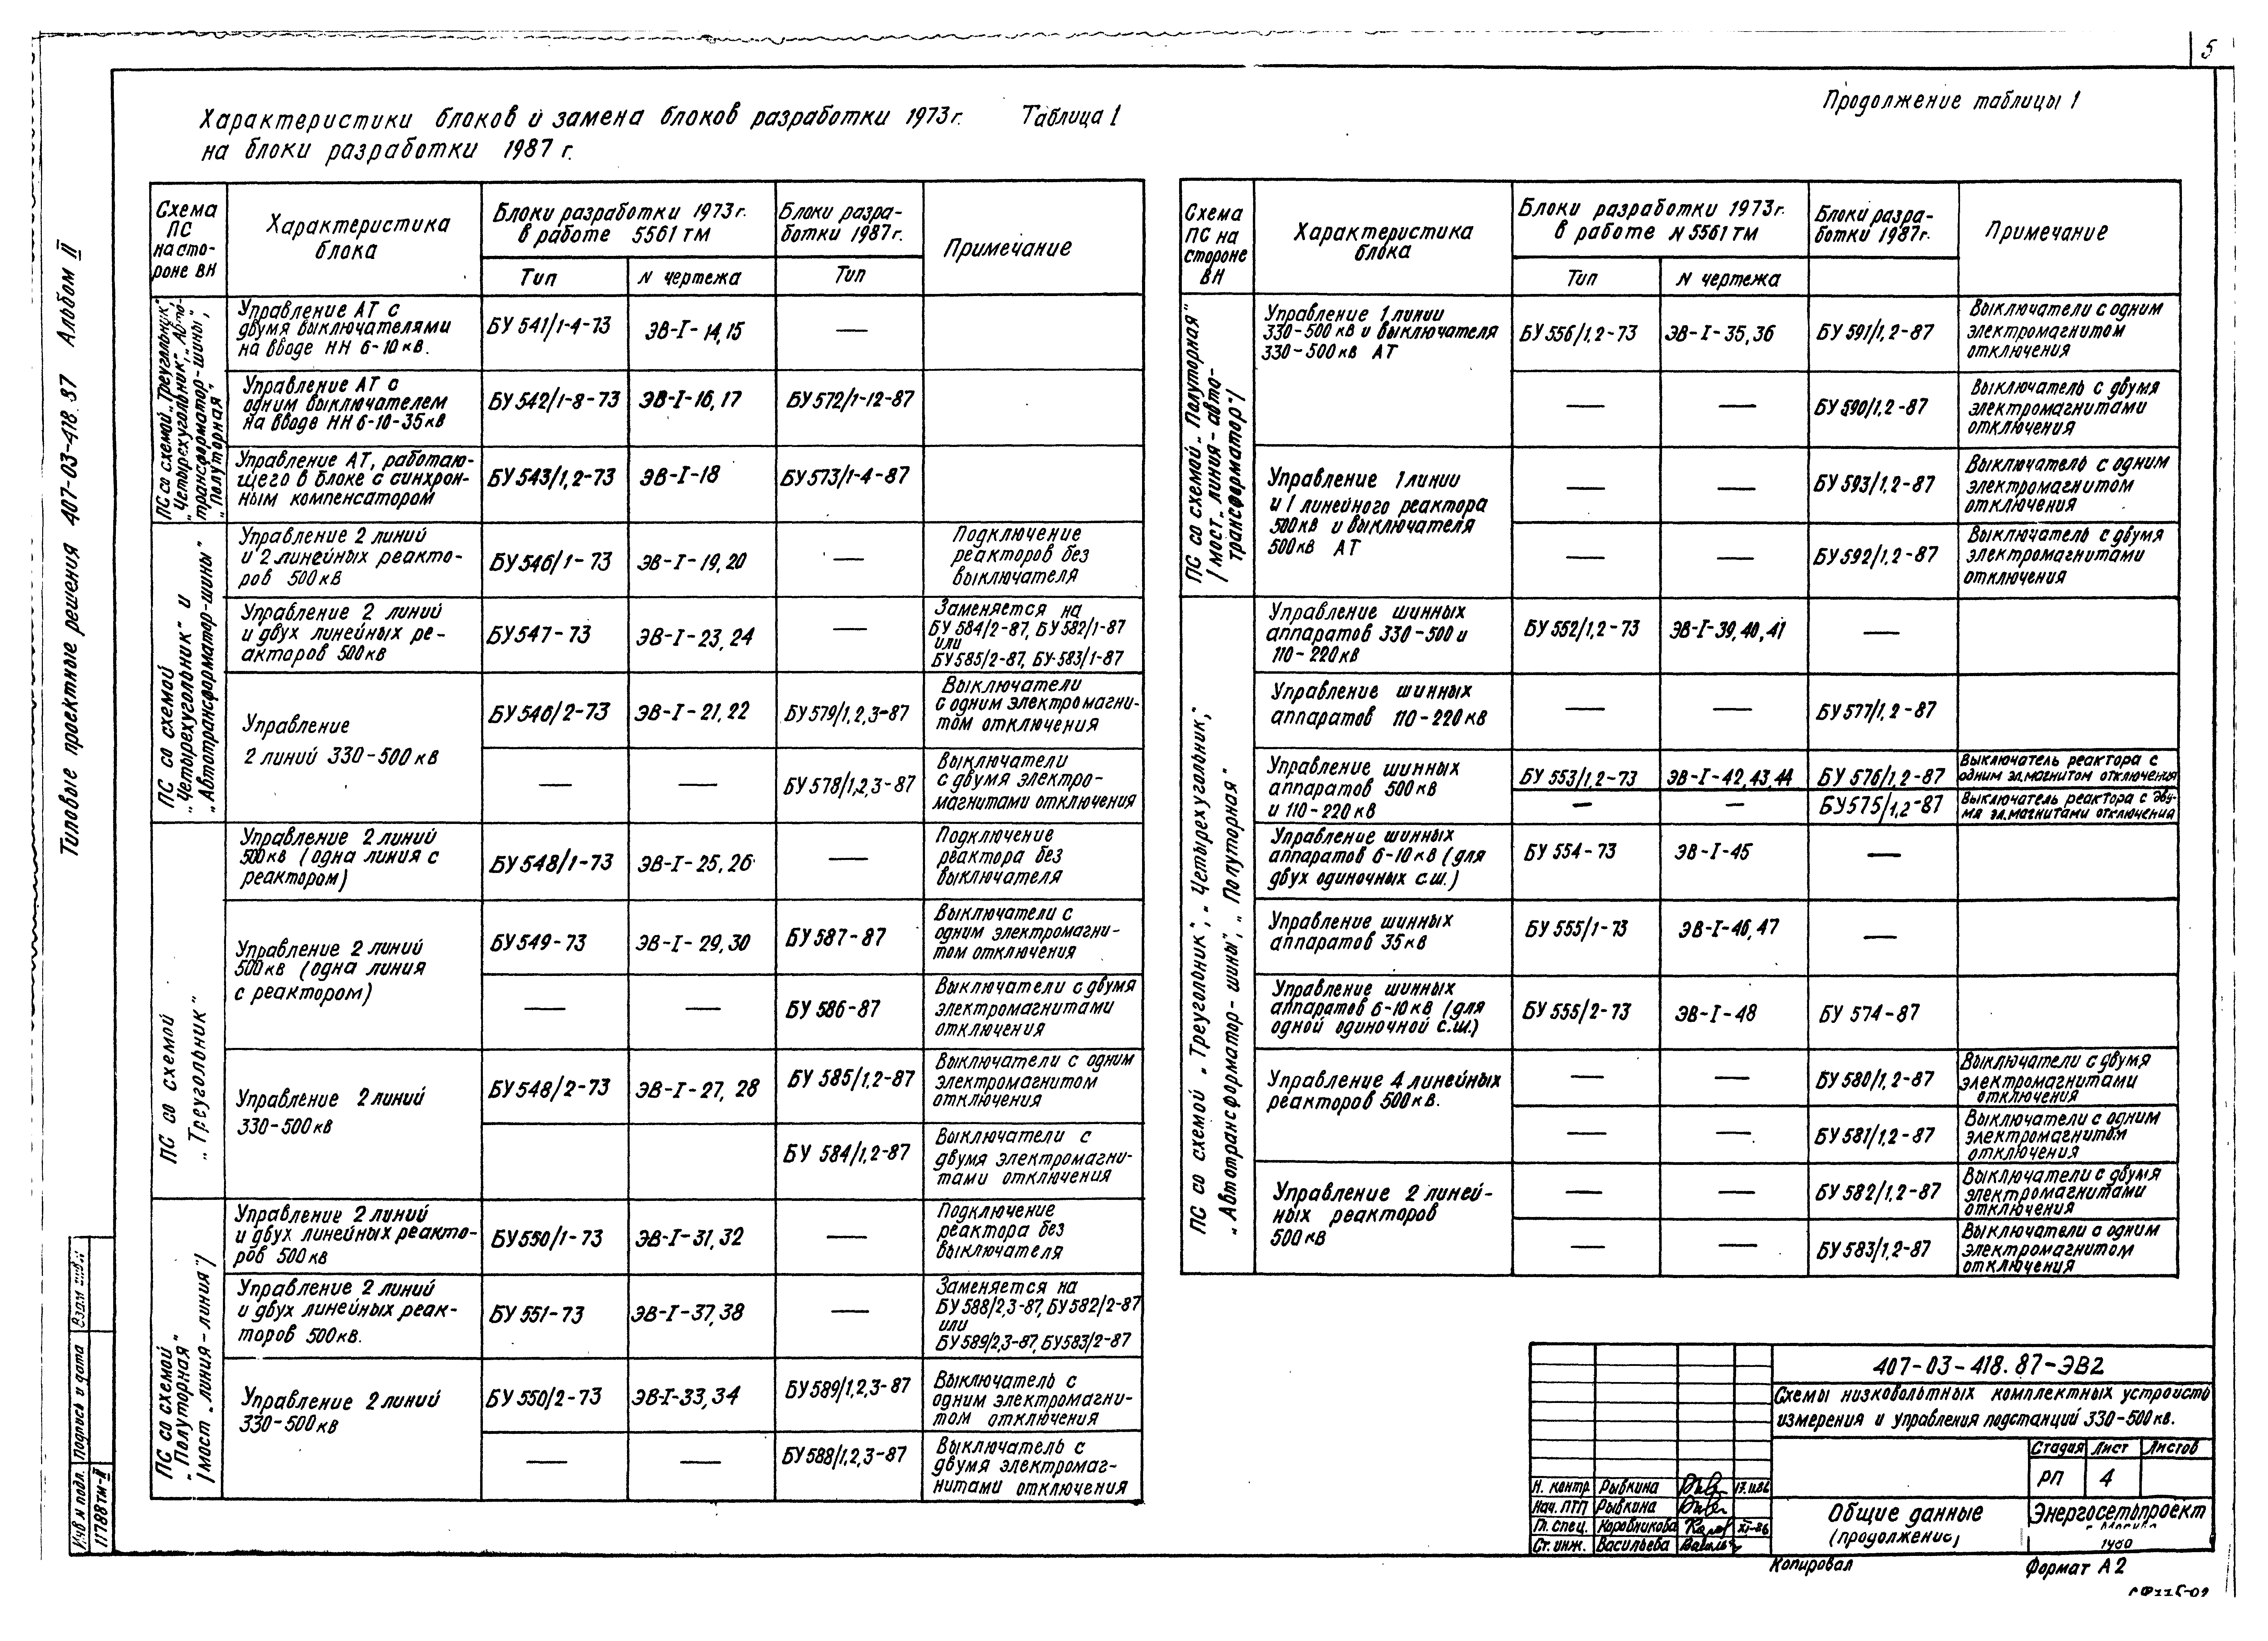 5
Характеристики блоков и замена блоков разработки 1973г. Таблица 1
на блоки разработки 1987 г.
Продолжение таблицы 1
Типовые проектные решения 407-03-418.87 Альбом II
Схема
ПС
на сто-
роне ВН
Характеристика
блока
Блоки разработки 1973г.
в работе 5561 ТМ
Блоки разра-
ботки 1987г.
Примечание
Тип
N чертежа
Тип
ПС со схемой „Треугольник",
„Четырехугольник", „Авто-
трансформатор-шины",
„Полуторная"
Управление АТ с
двумя выключателями
на вводе НН 6-10кв.
БУ 541/1-4-73
ЭВ-I-14,15
—
Управление АТ с
одним выключателем
на вводе НН 6-10-35кв
БУ 542/1-8-73
ЭВ-I-16,17
БУ 572/1-12-87
Управление АТ, работаю-
щего в блоке с синхрон-
ным компенсатором
БУ 543/1,2-73
ЭВ-I-18
БУ 573/1-4-87
ПС со схемой
„Четырехугольник" и
„Автотрансформатор-шины"
Управление 2 линий
и 2 линейных реакто-
ров 500кв
БУ 546/1-73
ЭВ-I-19,20
—
Подключение
реакторов без
выключателя
Управление 2 линий
и двух линейных ре-
акторов 500кв
БУ 547-73
ЭВ-I-23,24
—
Заменяется на
БУ 584/2-87, БУ 582/1-87
или
БУ 585/2-87, БУ-583/1-87
Управление
2 линий 330-500кв
БУ 546/2-73
ЭВ-I-21,22
БУ 579/1,2,3-87
Выключатели
с одним электромагни-
том отключения
—
—
БУ 578/1,2,3-87
Выключатели
с двумя электро-
магнитами отключения
ПС со схемой
„Треугольник"
Управление 2 линий
500кв (одна линия с
реактором)
БУ 548/1-73
ЭВ-I-25,26
—
Подключение
реактора без
выключателя
Управление 2 линий
500кв (одна линия
с реактором)
БУ 549-73
ЭВ-I-29,30
БУ 587-87
Выключатели с
одним электромагни-
том отключения
—
—
БУ 586-87
Выключатели с двумя
электромагнитами
отключения
Управление 2 линий
330-500кв
БУ 548/2-73
ЭВ-I-27,28
БУ 585/1,2-87
Выключатели с одним
электромагнитом
отключения
БУ 584/1,2-87
Выключатели с
двумя электромагни-
тами отключения
ПС со схемой
„Полуторная"
/мост „линия-линия")
Управление 2 линий
и двух линейных реакто-
ров 500кв
БУ 550/1-73
ЭВ-I-31,32
—
Подключение
реактора без
выключателя
Управление 2 линий
и двух линейных реак-
торов 500кв.
БУ 551-73
ЭВ-I-37,38
—
Заменяется на
БУ 588/2,3-87, БУ582/2-87
или
БУ589/2,3-87, БУ583/2-87
Управление 2 линий
330-500кв
БУ 550/2-73
ЭВ-I-33,34
БУ589/1,2,3-87
Выключатель с
одним электромагни-
том отключения
—
—
БУ588/1,2,3-87
Выключатель с
двумя электромаг-
нитами отключения
Схема
ПС на
стороне
ВН
Характеристика
блока
Блоки разработки 1973г.
в работе N 5561 ТМ
Блоки разра-
ботки 1987г.
Примечание
Тип
N чертежа
ПС со схемой „Полуторная"
/мост „линия-авто-
трансформатор"/
Управление 1 линии
330-500кв и выключателя
330-500кв АТ
БУ 556/1,2-73
ЭВ-I-35,36
БУ 591/1,2-87
Выключатели с одним
электромагнитом
отключения
—
—
БУ 590/1,2-87
Выключатель с двумя
электромагнитами
отключения
Управление 1 линии
и 1 линейного реактора
500кв и выключателя
500кв АТ
—
—
БУ 593/1,2-87
Выключатель с одним
электромагнитом
отключения
—
—
БУ 592/1,2-87
Выключатель с двумя
электромагнитами
отключения
ПС со схемой „Треугольник", „Четырехугольник",
„Автотрансформатор-шины", „Полуторная"
Управление шинных
аппаратов 330-500 и
110-220кв
БУ 552/1,2-73
ЭВ-I-39,40,41
—
Управление шинных
аппаратов 110-220кв
—
—
БУ 577/1,2-87
Управление шинных
аппаратов 500кв
и 110-220кв
БУ 553/1,2-73
ЭВ-I-42,43,44
БУ 576/1,2-87
Выключатель реактора с
одним эл.магнитом отключения
—
—
БУ575/1,2-87
Выключатель реактора с дву-
мя эл.магнитами отключения
Управление шинных
аппаратов 6-10кв (для
двух одиночных с.ш.)
БУ 554-73
ЭВ-I-45
—
Управление шинных
аппаратов 35кв
БУ 555/1-73
ЭВ-I-46,47
—
Управление шинных
аппаратов 6-10кв (для
одной одиночной с.ш.)
БУ 555/2-73
ЭВ-I-48
БУ 574-87
Управление 4 линейных
реакторов 500кв.
—
—
БУ 580/1,2-87
Выключатели с двумя
электромагнитами
отключения
—
—
БУ 581/1,2-87
Выключатели с одним
электромагнитом
отключения
Управление 2 линей-
ных реакторов
500кв
—
—
БУ 582/1,2-87
Выключатели с двумя
электромагнитами
отключения
—
—
БУ 583/1,2-87
Выключатели с одним
электромагнитом
отключения
407-03-418.87-ЭВ2
Схемы низковольтных комплектных устройств
измерения и управления подстанций 330-500кв.
Стадия Лист Листов
РП 4
Н. контр. Рывкина
Нач. ПТП Рывкина
Гл. спец. Коровникова XI-86
Ст. инж. Васильева
Общие данные
(продолжение)
Энергосетьпроект
г. Москва
Копировал
Формат А2
Инв N подл. Подпись и дата Взам инв.
11788тм-II